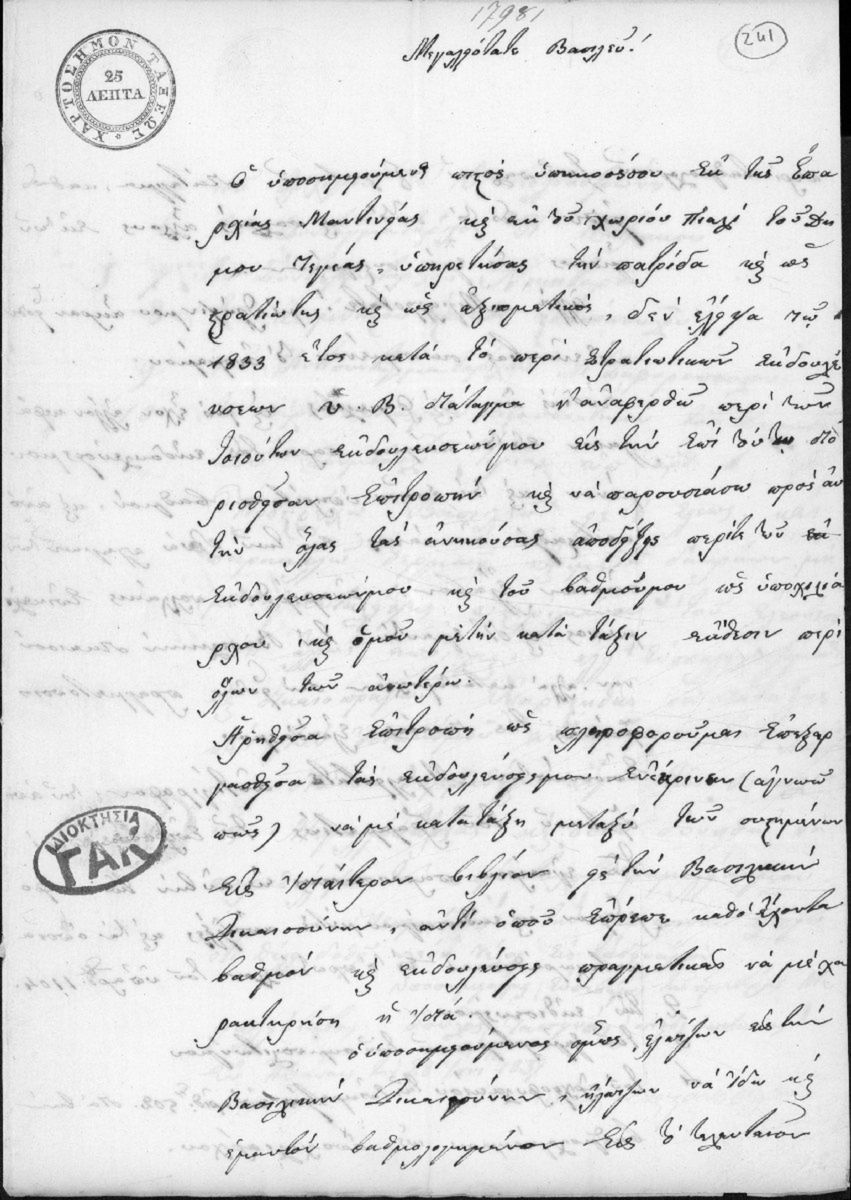 17981
241
ΧΑΡΤΟΣΗΜΟΝ ΤΑΞΕΩΣ
25
ΛΕΠΤΑ
Μεγαλειότατε Βασιλεύ!
Ὁ ὑποσημειούμενος πιςὸς ὑπήκοός σου ἐκ τῆς Ἐπα
ρχίας Μαντινείας κὲ ἐκ τοῦ χωρίου Πιαλὶ τοῦ Δη
μου Τεγέας, ὑπηρετήσας τὴν πατρίδα κὲ ὡς
ςρατιώτης κὲ ὡς ἀξιωματικός, δὲν ἔλειψα τῷ
1833 ἔτος κατὰ τὸ περὶ Στρατιωτικῶν ἐκδουλέ
υσεων Υ. Β. διάταγμα ν' ἀναφερθῶ περὶ τῶν
τοιούτων ἐκδουλεύσεών μου εἰς τὴν ἐπὶ τούτῳ διο
ρισθεῖσαν Ἐπιτροπὴν κὲ νὰ παρουσιάσω πρὸς αὐ
τὴν ὅλας τὰς ἀνηκούσας ἀποδείξεις περί τε τῶν
ἐκδουλεύσεών μου κὲ τοῦ βαθμοῦ μου ὡς ὑποχιλιά
ρχου κὲ ὁμοῦ μὲ τὴν κατὰ τάξιν ἔκθεσιν περὶ
ὅλων τῶν ἀνωτέρω.
Ἡ ρηθεῖσα Ἐπιτροπὴ ὡς πληροφοροῦμαι ἐπεξερ
γασθεῖσα τὰς ἐκδουλεύσεις μου ἐνέκρινεν (ἀγνοῶ
πῶς) νὰ μὲ κατατάξῃ μεταξὺ τῶν
Εἰς ἰδιαίτερον βιβλίον μὲ τὴν Βασιλικὴν
Δικαιοσύνην, ἀντὶ ὁποῦ ἔπρεπε καθὸ ἔχοντα
βαθμὸν κὲ ἐκδουλεύσεις πραγματικὰς νὰ μὲ χα
ρακτηρήση
ὁ ὑποσημειούμενος ὅμως, ἐλπίζων εἰς τὴν
Βασιλικὴν Δικαιοσύνην, ἤλπιζον νὰ ἰδῶ κὲ
ἐμαυτὸν βαθμολογημένον Εἰς τὸ τελευταῖον
ΙΔΙΟΚΤΗΣΙΑ
ΓΑΚ